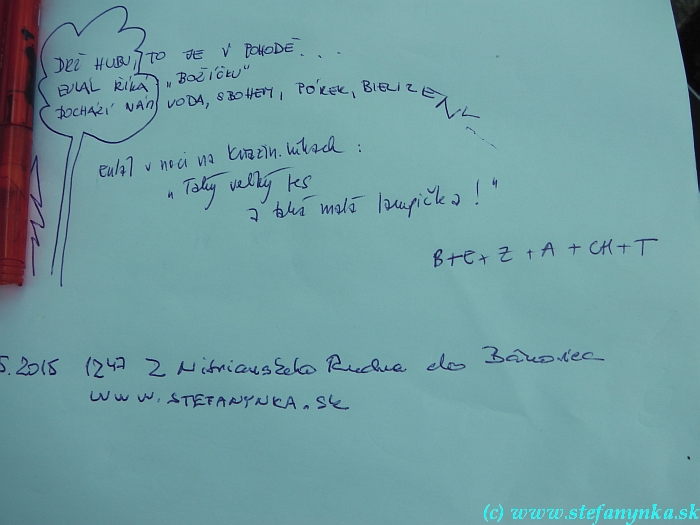 DRŽ HUBU, TO JE V POHODĚ...
EULAL ŘÍKÁ „BOŽÍČKU"
DOCHÁZÍ NÁM VODA, SBOHEM, PÓREK,
v noci na :
„Taký velký les
a taká malá lampička!"
B+E+Z+A+CH+T
5.2015 12⁴⁷ Z Nitrianskeho Rudna do Bánoviec
WWW.STEFANYNKA.SK
(c) www.stefanynka.sk